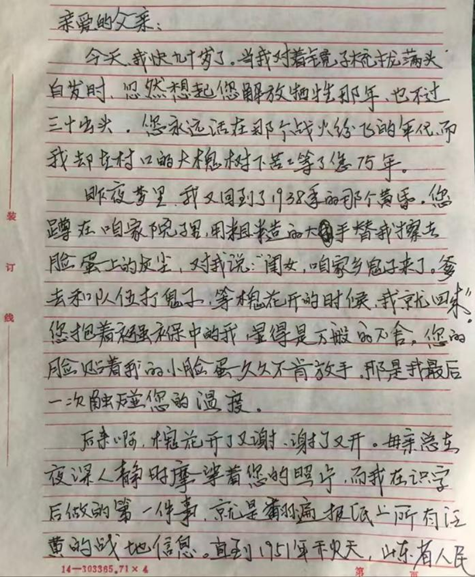 亲爱的父亲:
今天,我快九十岁了。当我对着镜子梳拢满头
白发时,忽然想起您解放牺牲那年,也不过
三十出头。您永远活在那个战火纷飞的年代,而
我却在村口的大槐树下苦苦等了您75年。
昨夜梦里,我又回到了1938年的那个黄昏。您
蹲在咱家院子里,用粗糙的大手替我擦去
脸蛋上的灰尘,对我说:"闺女,咱家乡鬼子来了。爹
去和队伍打鬼子,等槐花开的时候,我就回来"。
您抱着襁褓中的我,显得是万般的不舍。您的
脸贴着我的小脸蛋久久不肯放手,那是我最后
一次触碰您的温度。
后来啊,槐花开了又谢,谢了又开。母亲总在
夜深人静时摩挲着您的照片,而我在识字
后做的第一件事,就是翻遍报纸上所有泛
黄的战地信息。直到1951年秋天,山东省人民
装
订
线
14—303365.71×4
第